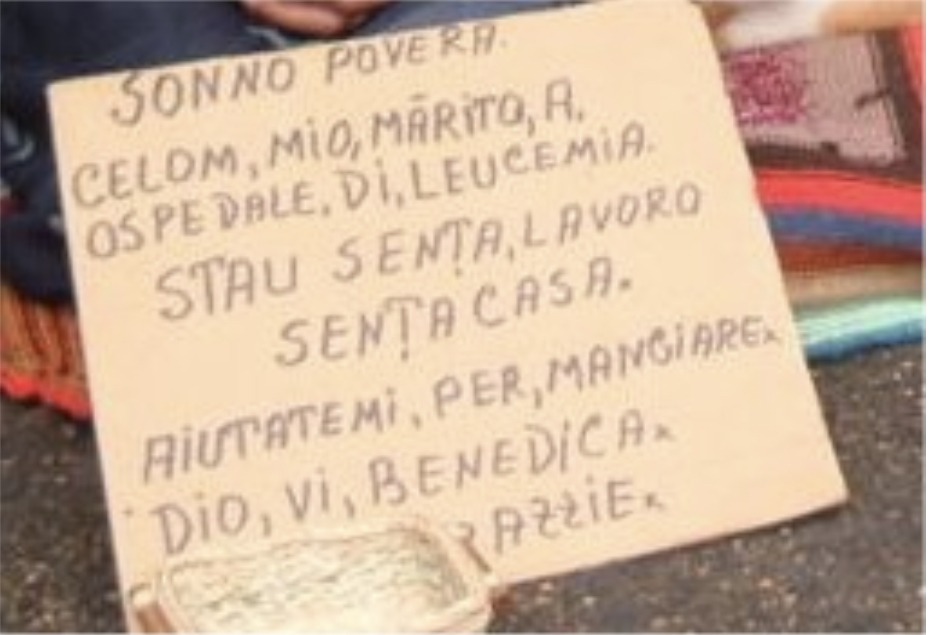 SONNO POVERA.
CELOM, MIO, MĀRITO, A.
OSPEDALE. DI, LEUCEMIA.
STAU SENȚA, LAVORO
SENȚA CASA.
AIUTATEMI, PER, MANGIARE
DIO, VI, BENEDICA